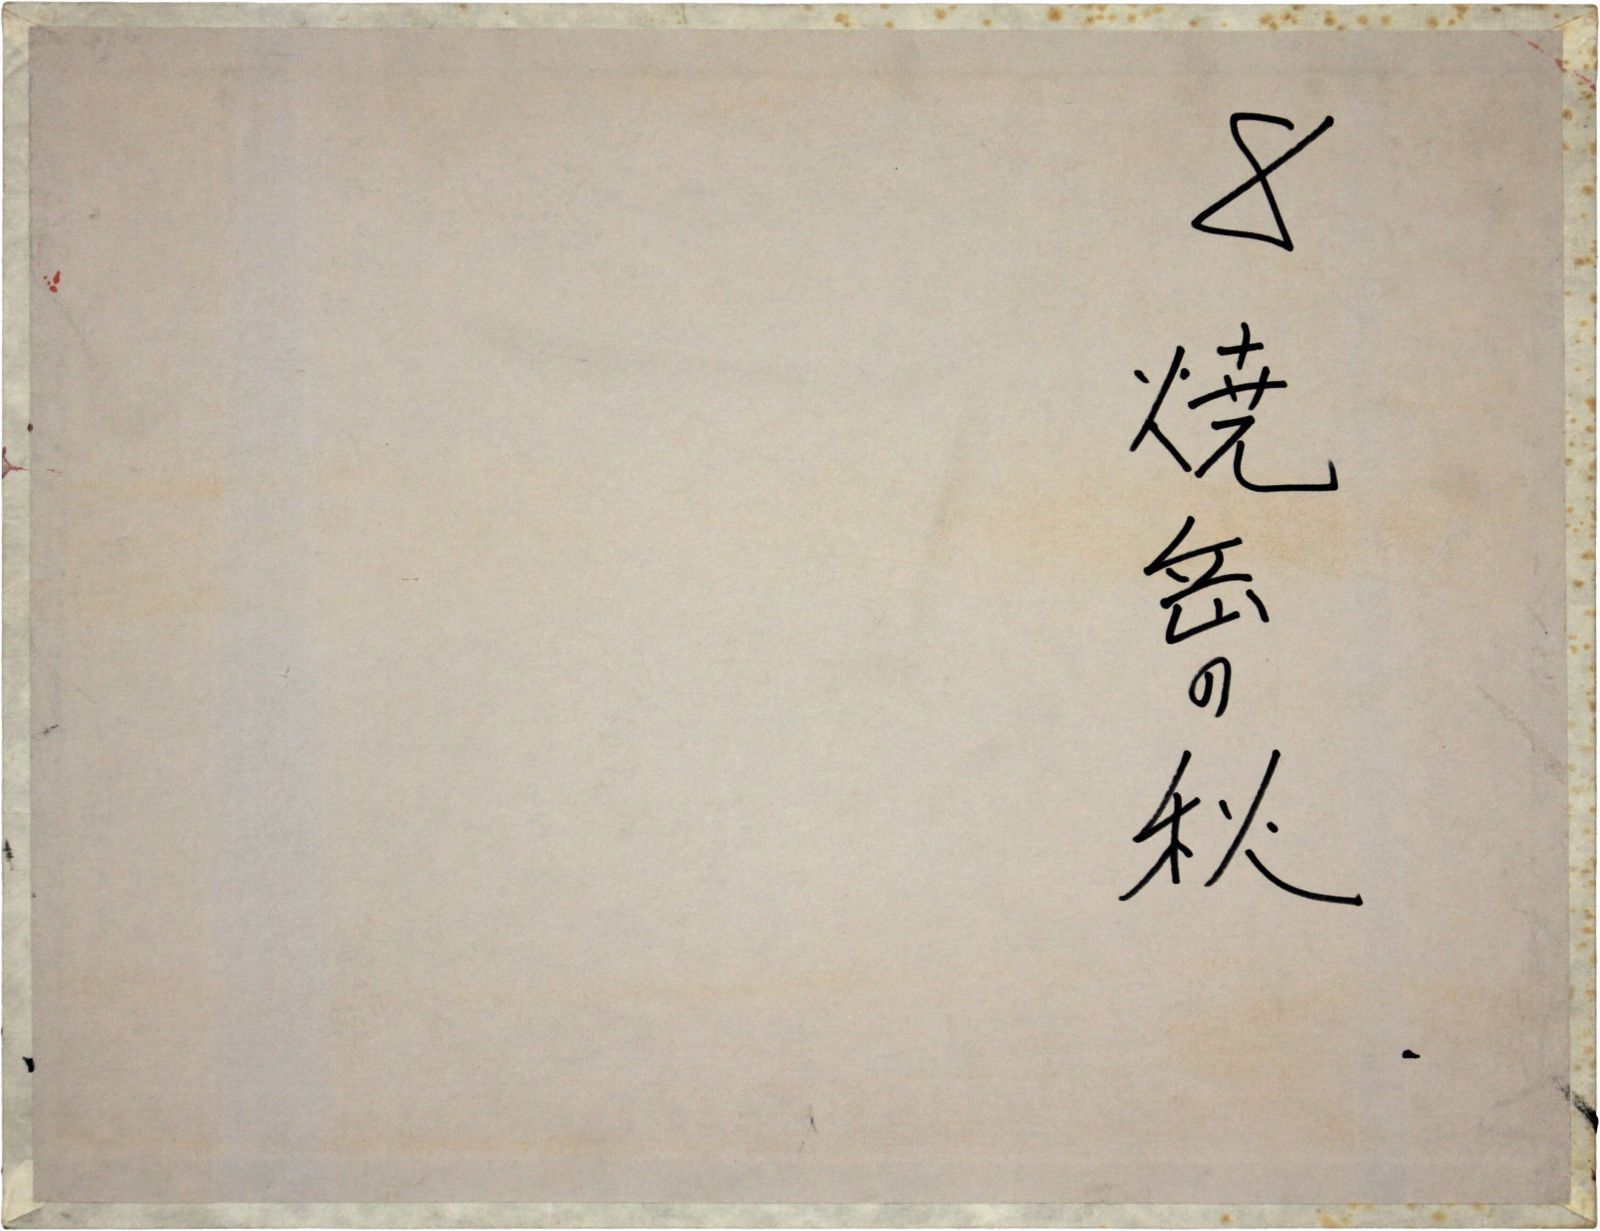 8 焼岳の秋